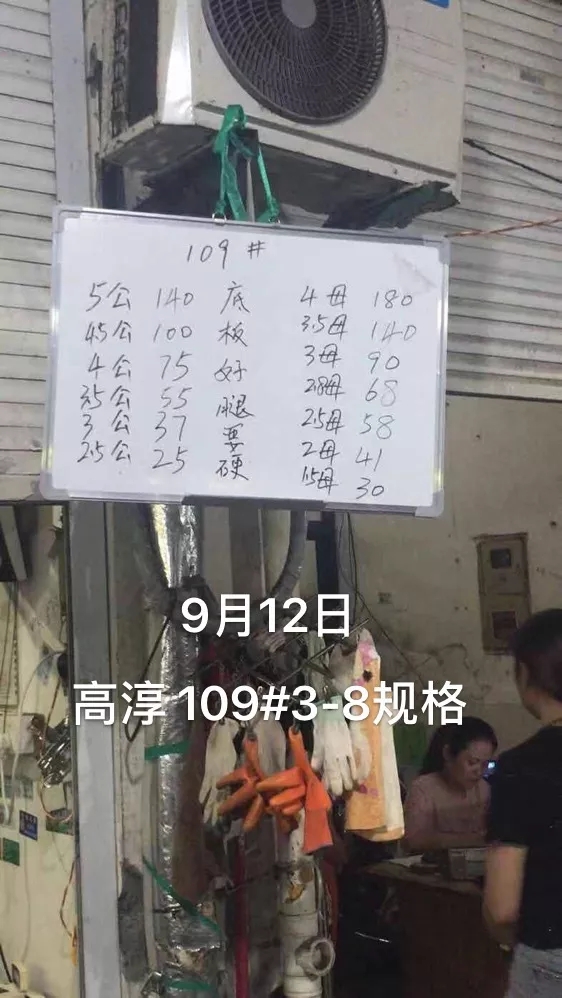 109#
5公 140 底 4母 180
4.5公 100 板 3.5母 140
4公 75 好 3母 90
3.5公 55 腿 2.8母 68
3公 37 要 2.5母 58
2.5公 25 硬 2母 41
1.5母 30
9月12日
高淳109#3-8规格